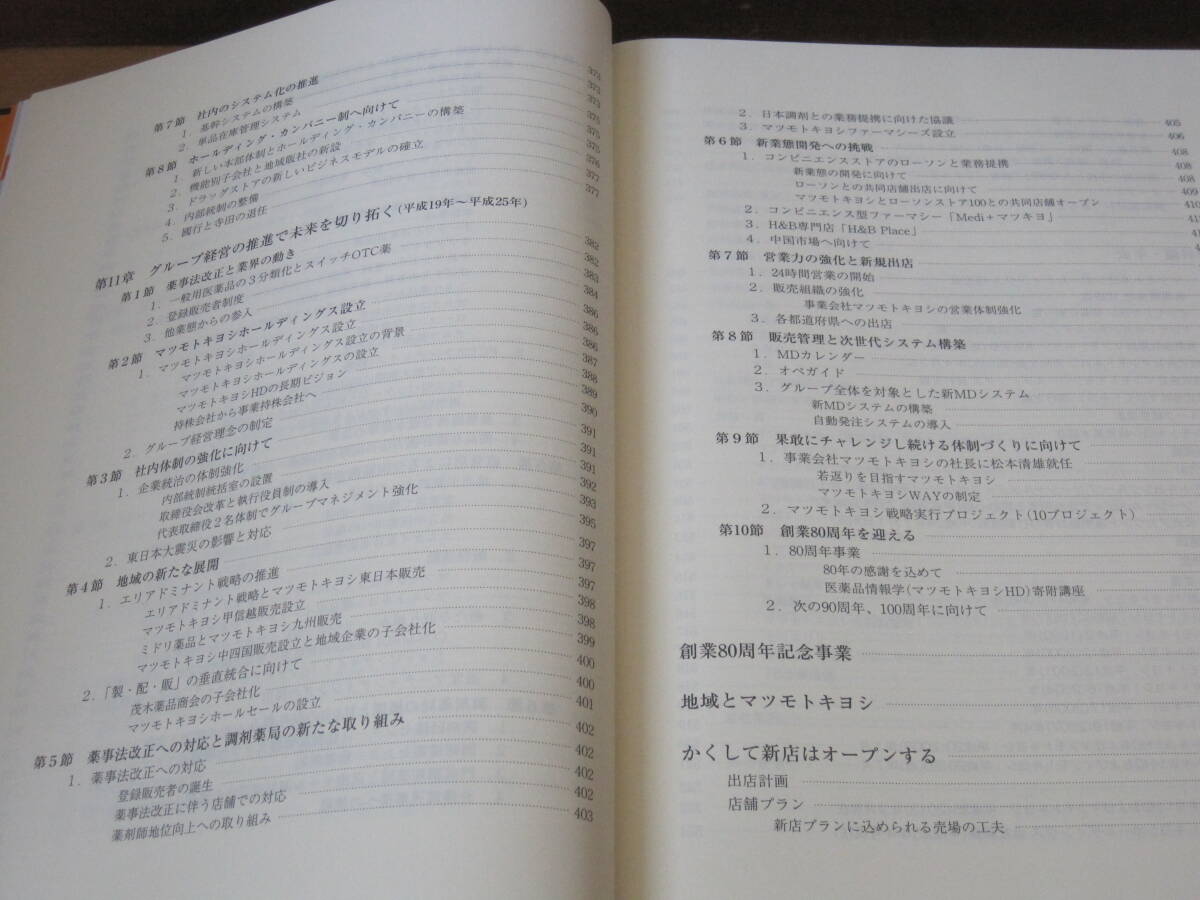 第7節　社内のシステム化の推進
1．基幹システムの構築 373
2．単品在庫管理システム 373
第8節　ホールディング・カンパニー制へ向けて
1．新しい本部体制とホールディング・カンパニーの構築
2．機能別子会社と地域販社の新設
3．ドラッグストアの新しいビジネスモデルの確立
4．内部統制の整備 377
5．國行と寺田の退任 377
第11章　グループ経営の推進で未来を切り拓く(平成19年〜平成25年)
第1節　薬事法改正と業界の動き 382
1．一般用医薬品の３分類化とスイッチOTC薬 382
2．登録販売者制度 383
3．他業態からの参入 384
第2節　マツモトキヨシホールディングス設立 386
1．マツモトキヨシホールディングス設立 386
マツモトキヨシホールディングス設立の背景 386
マツモトキヨシホールディングスの設立 387
マツモトキヨシHDの長期ビジョン 388
持株会社から事業持株会社へ 389
2．グループ経営理念の制定 390
第3節　社内体制の強化に向けて 391
1．企業統治の体制強化 391
内部統制統括室の設置 391
取締役会改革と執行役員制の導入 392
代表取締役２名体制でグループマネジメント強化 393
2．東日本大震災の影響と対応 395
第4節　地域の新たな展開 397
1．エリアドミナント戦略の推進 397
エリアドミナント戦略とマツモトキヨシ東日本販売 397
マツモトキヨシ甲信越販売設立 398
ミドリ薬品とマツモトキヨシ九州販売 398
マツモトキヨシ中四国販売設立と地域企業の子会社化 399
2．「製・配・販」の垂直統合に向けて 400
茂木薬品商会の子会社化 400
マツモトキヨシホールセールの設立 401
第5節　薬事法改正への対応と調剤薬局の新たな取り組み 402
1．薬事法改正への対応 402
登録販売者の誕生 402
薬事法改正に伴う店舗での対応 402
薬剤師地位向上への取り組み 403
2．日本調剤との業務提携に向けた協議 405
3．マツモトキヨシファーマシーズ設立 406
第6節　新業態開発への挑戦 408
1．コンビニエンスストアのローソンと業務提携 408
新業態の開発に向けて 408
ローソンとの共同店舗出店に向けて 409
マツモトキヨシとローソンストア100との共同店舗オープン 410
2．コンビニエンス型ファーマシー「Medi＋マツキヨ」
3．H&B専門店「H&B Place」
4．中国市場へ向けて
第7節　営業力の強化と新規出店
1．24時間営業の開始
2．販売組織の強化
事業会社マツモトキヨシの営業体制強化
3．各都道府県への出店
第8節　販売管理と次世代システム構築
1．MDカレンダー
2．オペガイド
3．グループ全体を対象とした新MDシステム
新MDシステムの構築
自動発注システムの導入
第9節　果敢にチャレンジし続ける体制づくりに向けて
1．事業会社マツモトキヨシの社長に松本清雄就任
若返りを目指すマツモトキヨシ
マツモトキヨシWAYの制定
2．マツモトキヨシ戦略実行プロジェクト(10プロジェクト)
第10節　創業80周年を迎える
1．80周年事業
80年の感謝を込めて
医薬品情報学(マツモトキヨシHD)寄附講座
2．次の90周年、100周年に向けて
創業80周年記念事業
地域とマツモトキヨシ
かくして新店はオープンする
出店計画
店舗プラン
新店プランに込められる売場の工夫